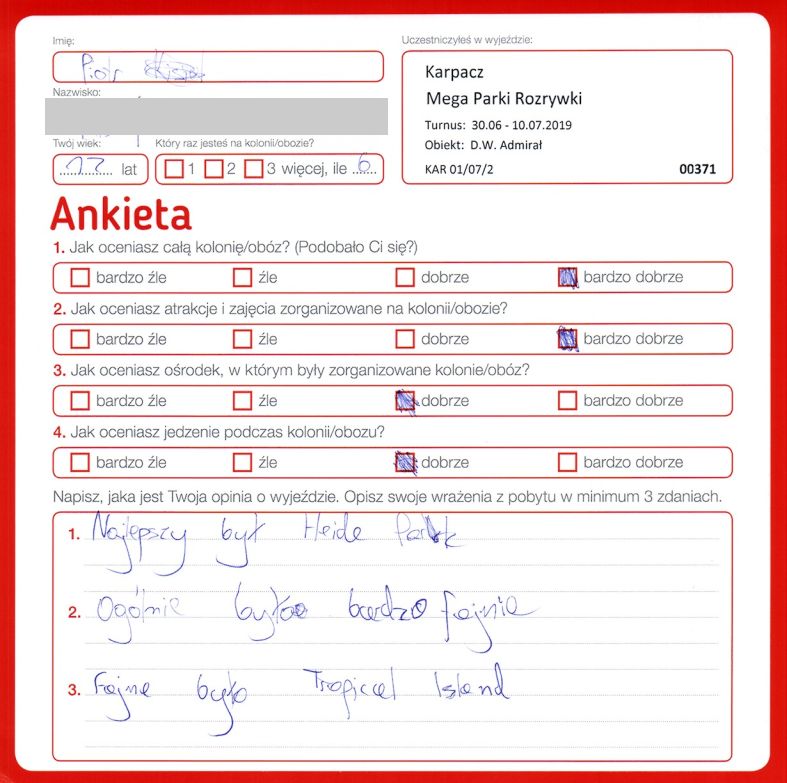 Imię:
Uczestniczyłeś w wyjeździe:
Piotr
Karpacz
Mega Parki Rozrywki
Nazwisko:
Turnus: 30.06 - 10.07.2019
Obiekt: D.W. Admirał
Twój wiek:
Który raz jesteś na kolonii/obozie?
12 lat
1 2 3 więcej, ile 6
KAR 01/07/2 00371
Ankieta
1. Jak oceniasz całą kolonię/obóz? (Podobało Ci się?)
bardzo źle źle dobrze bardzo dobrze
2. Jak oceniasz atrakcje i zajęcia zorganizowane na kolonii/obozie?
bardzo źle źle dobrze bardzo dobrze
3. Jak oceniasz ośrodek, w którym były zorganizowane kolonie/obóz?
bardzo źle źle dobrze bardzo dobrze
4. Jak oceniasz jedzenie podczas kolonii/obozu?
bardzo źle źle dobrze bardzo dobrze
Napisz, jaka jest Twoja opinia o wyjeździe. Opisz swoje wrażenia z pobytu w minimum 3 zdaniach.
1. Najlepszy był Heide Park
2. Ogólnie było bardzo fajnie
3. Fajne było Tropical Island